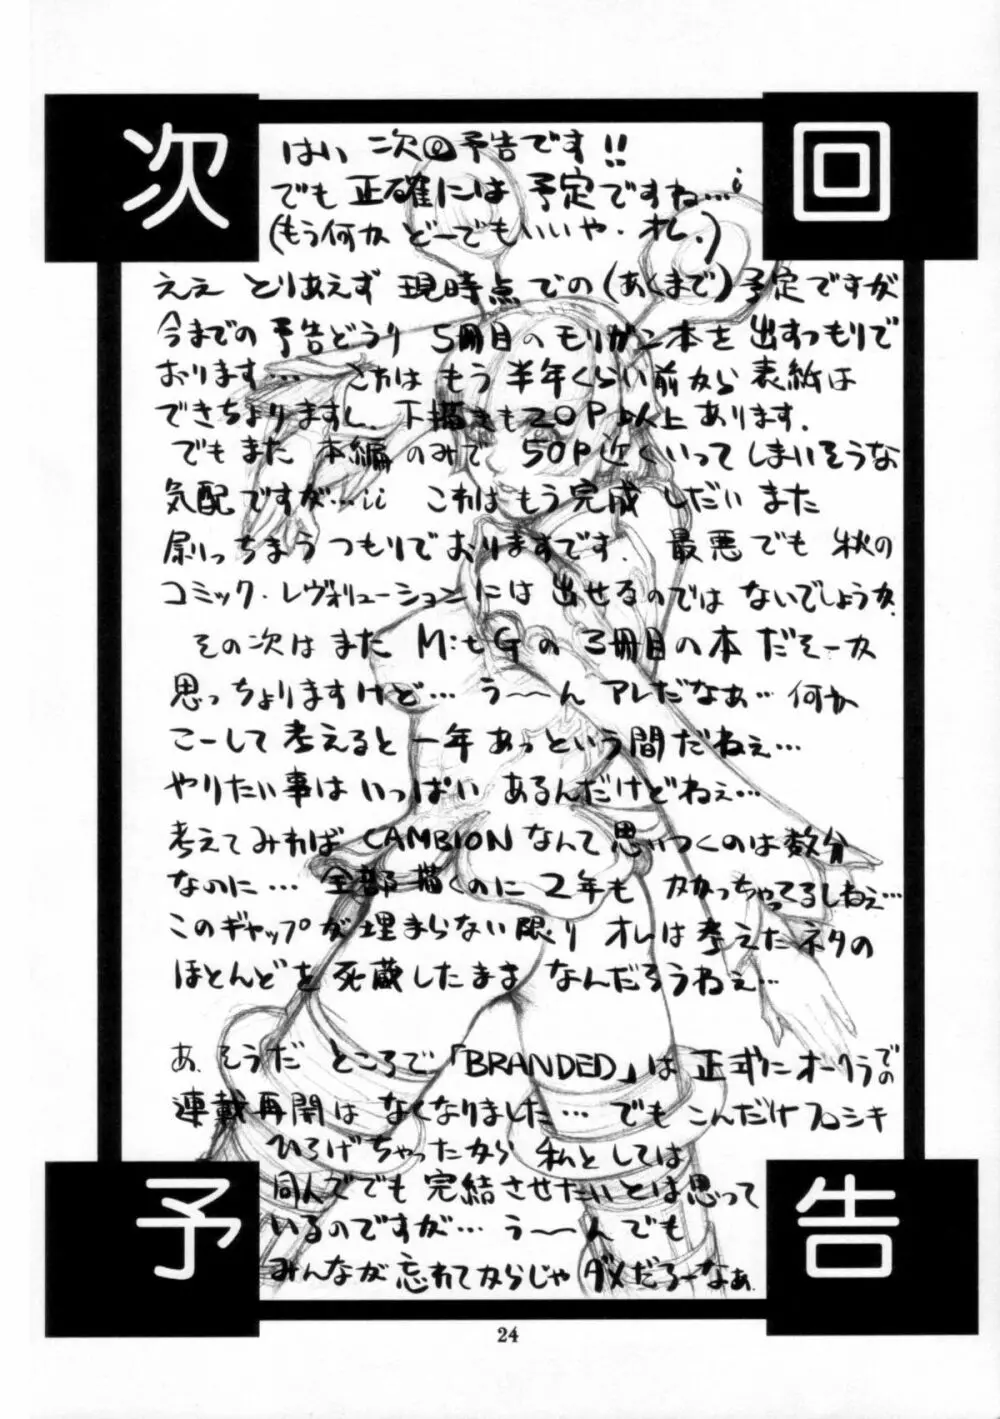 次回
はい 次の予告です!!
でも 正確には 予定ですね…;
(もう何か どーでもいいや・オレ.)
ええ とりあえず 現時点での(あくまで)予定ですが
今までの 予告どうり 5冊目のモリガン本を 出すつもりで
おります… これは もう 半年くらい前から 表紙は
できちょりますし、下描きも20P以上あります.
でもまた 本編のみで 50P近くいってしまいそうな
気配ですが…;; これはもう完成 しだい また
刷っちまう つもりでおりますです. 最悪でも 秋の
コミック・レヴォリューションには 出せるのでは ないでしょうか.
その次は また M:tGの 3冊目の本 だそーか
思っちょりますけど… う〜〜ん アレだなぁ… 何か
こーして 考えると 一年 あっという間だねぇ…
やりたい事は いっぱい あるんだけどねぇ…
考えてみれば CAMBIONなんて 思いつくのは数分
なのに… 全部描くのに 2年も かかっちゃってるしねぇ…
このギャップが 埋まらない限り オレは考えたネタの
ほとんどを 死蔵したまま なんだろうねぇ…
あ、そうだ ところで「BRANDED」は 正式にオークラでの
連載再開は なくなりました… でも こんだけフロシキ
ひろげちゃったから 私としては
同人ででも 完結させたいとは思って
いるのですが… う〜〜ん でも
みんなが 忘れてからじゃ ダメだろーなぁ.
予告
24